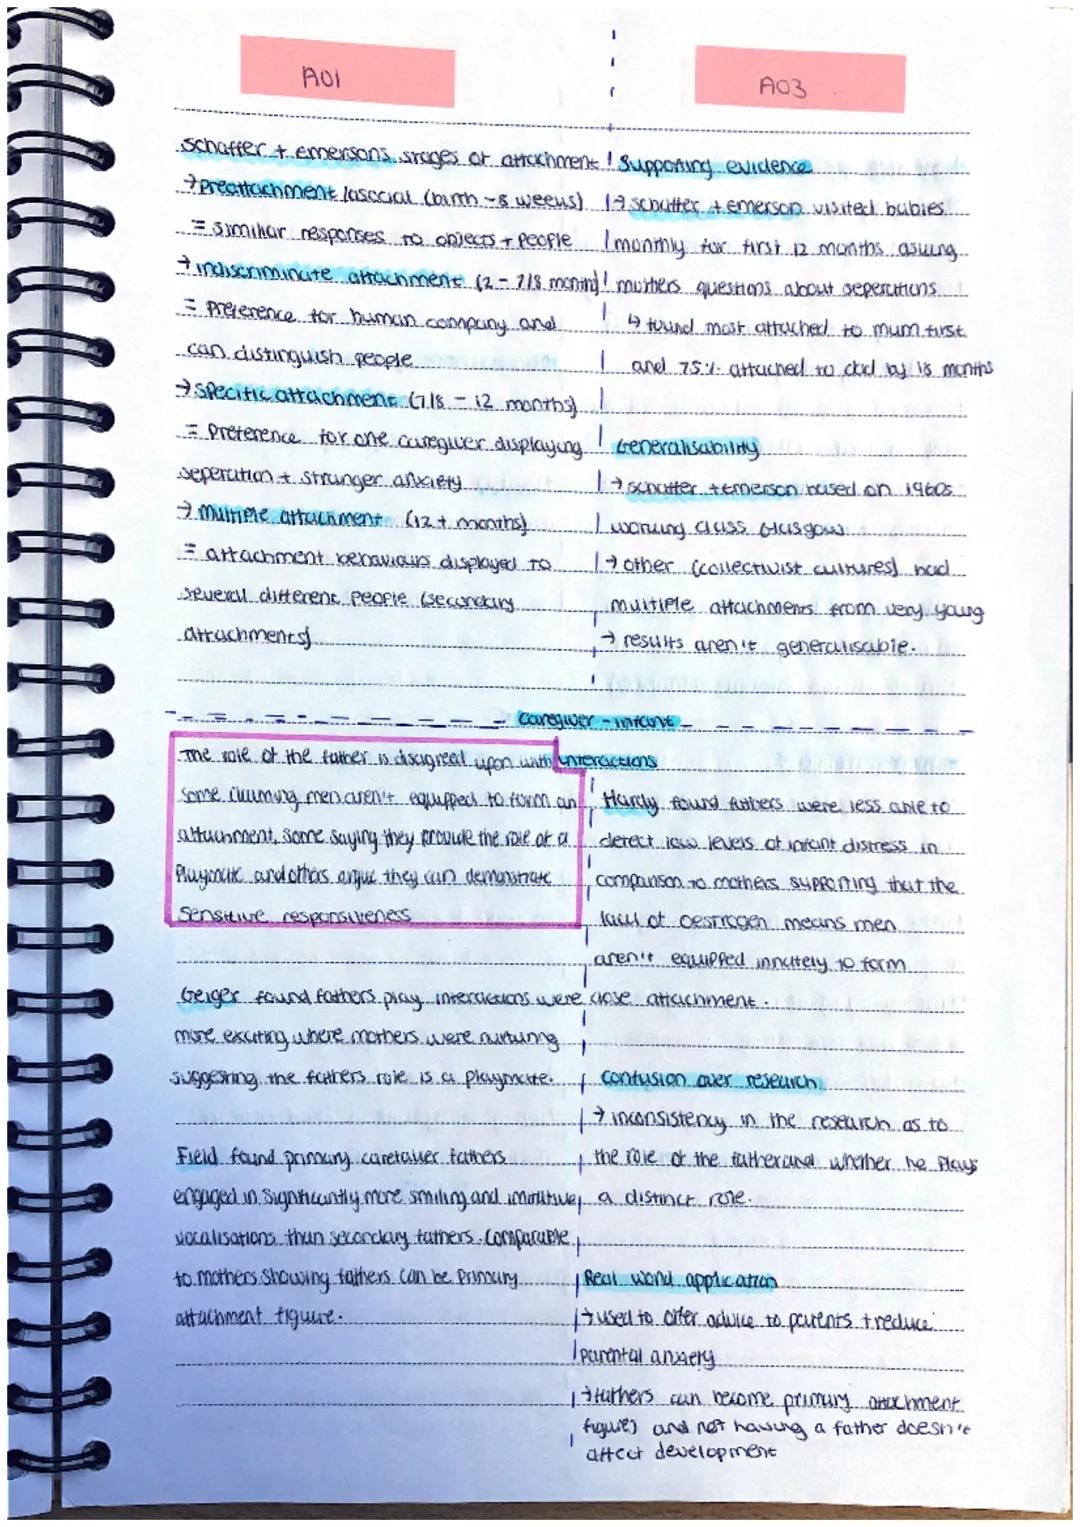 AO1
AO3
Schaffer + emersons stages of attachment
→ Preattachment / asocial (birth - 8 weeks)
= similar responses to objects + people
→ indiscriminate attachment (2 - 7/8 month)
= Preference for human company and
can distinguish people
→ specific attachment (7/8 - 12 months)
= Preference for one caregiver displaying
seperation + stranger anxiety
→ multiple attachment (12+ months)
= attachment behaviours displayed to
several different people (secondary
attachments)
Supporting evidence
→ schaffer + emerson visited babies
monthly for first 12 months asking
mothers questions about seperations
↳ found most attached to mum first
and 75% attached to dad by 18 months
Generalisability
→ schaffer + emerson based on 1960s
working class Glasgow
→ other (collectivist cultures) had
multiple attachments from very young
→ results aren't generalisable.
caregiver - infant
interactions
The role of the father is disagreed upon with
some claiming men aren't equipped to form an
attachment, some saying they provide the role of a
Playmate and others argue they can demonstrate
sensitive responsiveness
Geiger found fathers play interactions were
more exciting where mothers were nurturing
suggesting the fathers role is a playmate.
Field found primary caretaker fathers
engaged in significantly more smiling and imitative
vocalisations than secondary fathers. Comparable
to mothers showing fathers can be primary
attachment figure.
Hardy found fathers were less able to
detect low levels of infant distress in
comparison to mothers supporting that the
lack of oestrogen means men
aren't equipped innately to form
close attachment.
Confusion over research
→ inconsistency in the research as to
the role of the father and whether he plays
a distinct role.
Real world application
→ used to offer advice to parents + reduce
parental anxiety
→ fathers can become primary attachment
figures and not having a father doesn't
affect development